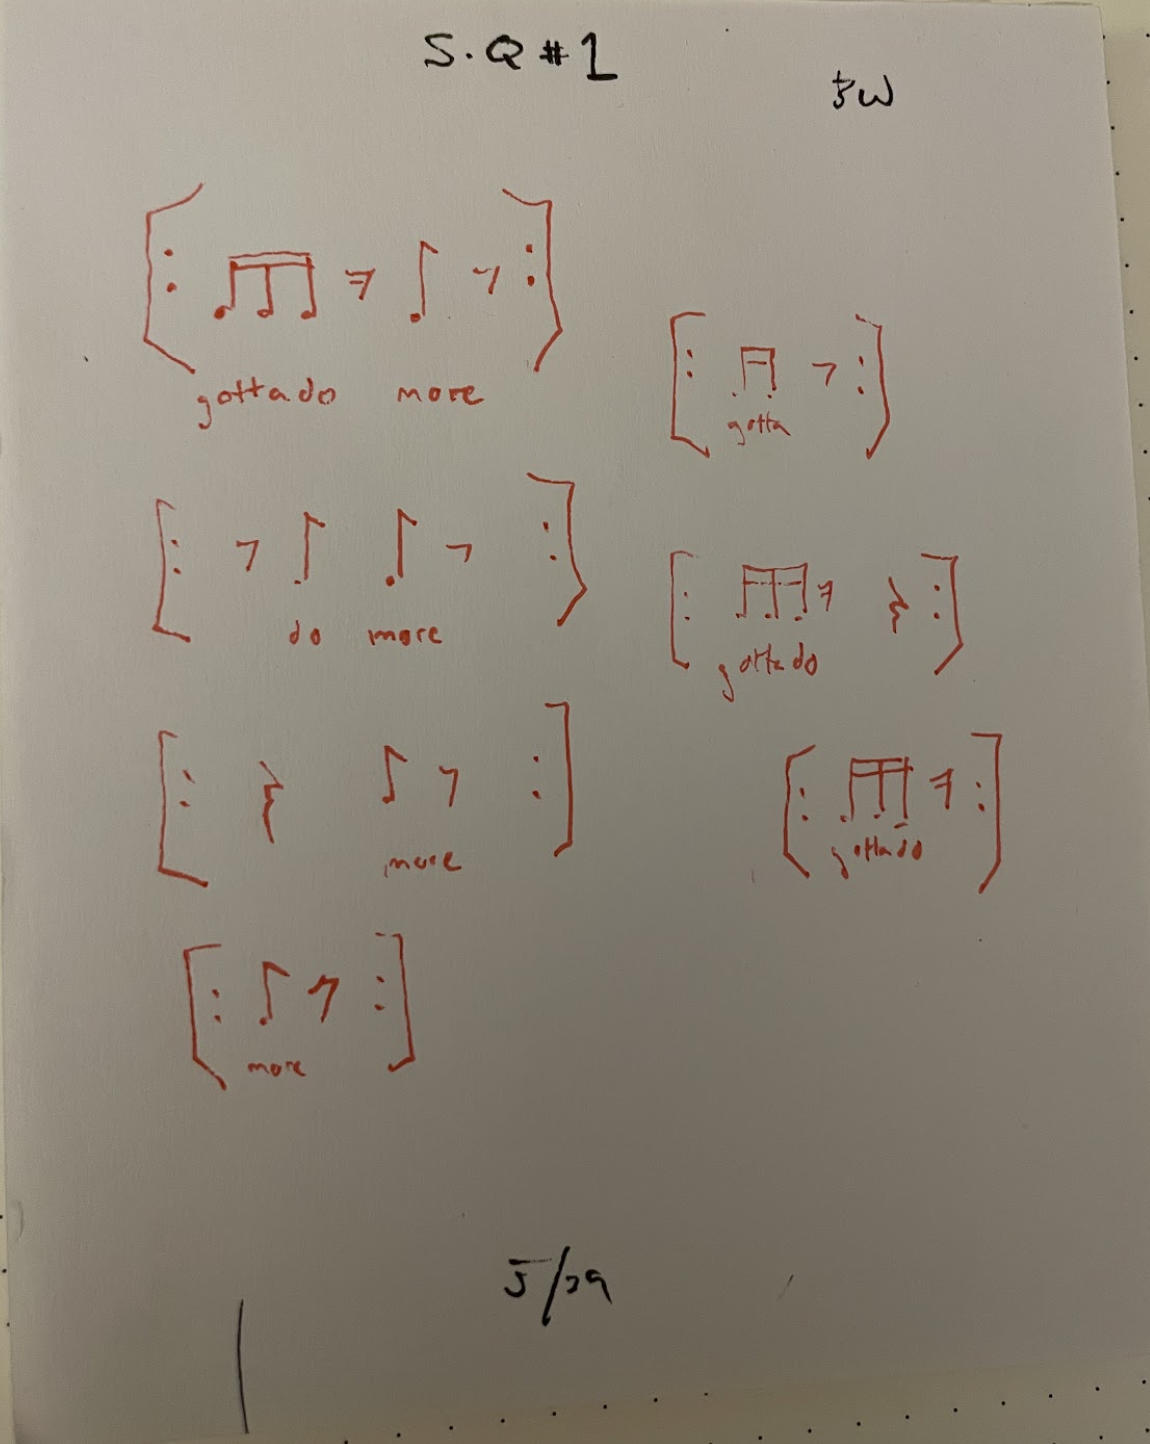 S.Q #1
BW
gotta do more
gotta
do more
gotta do
more
gotta do
more
5/29